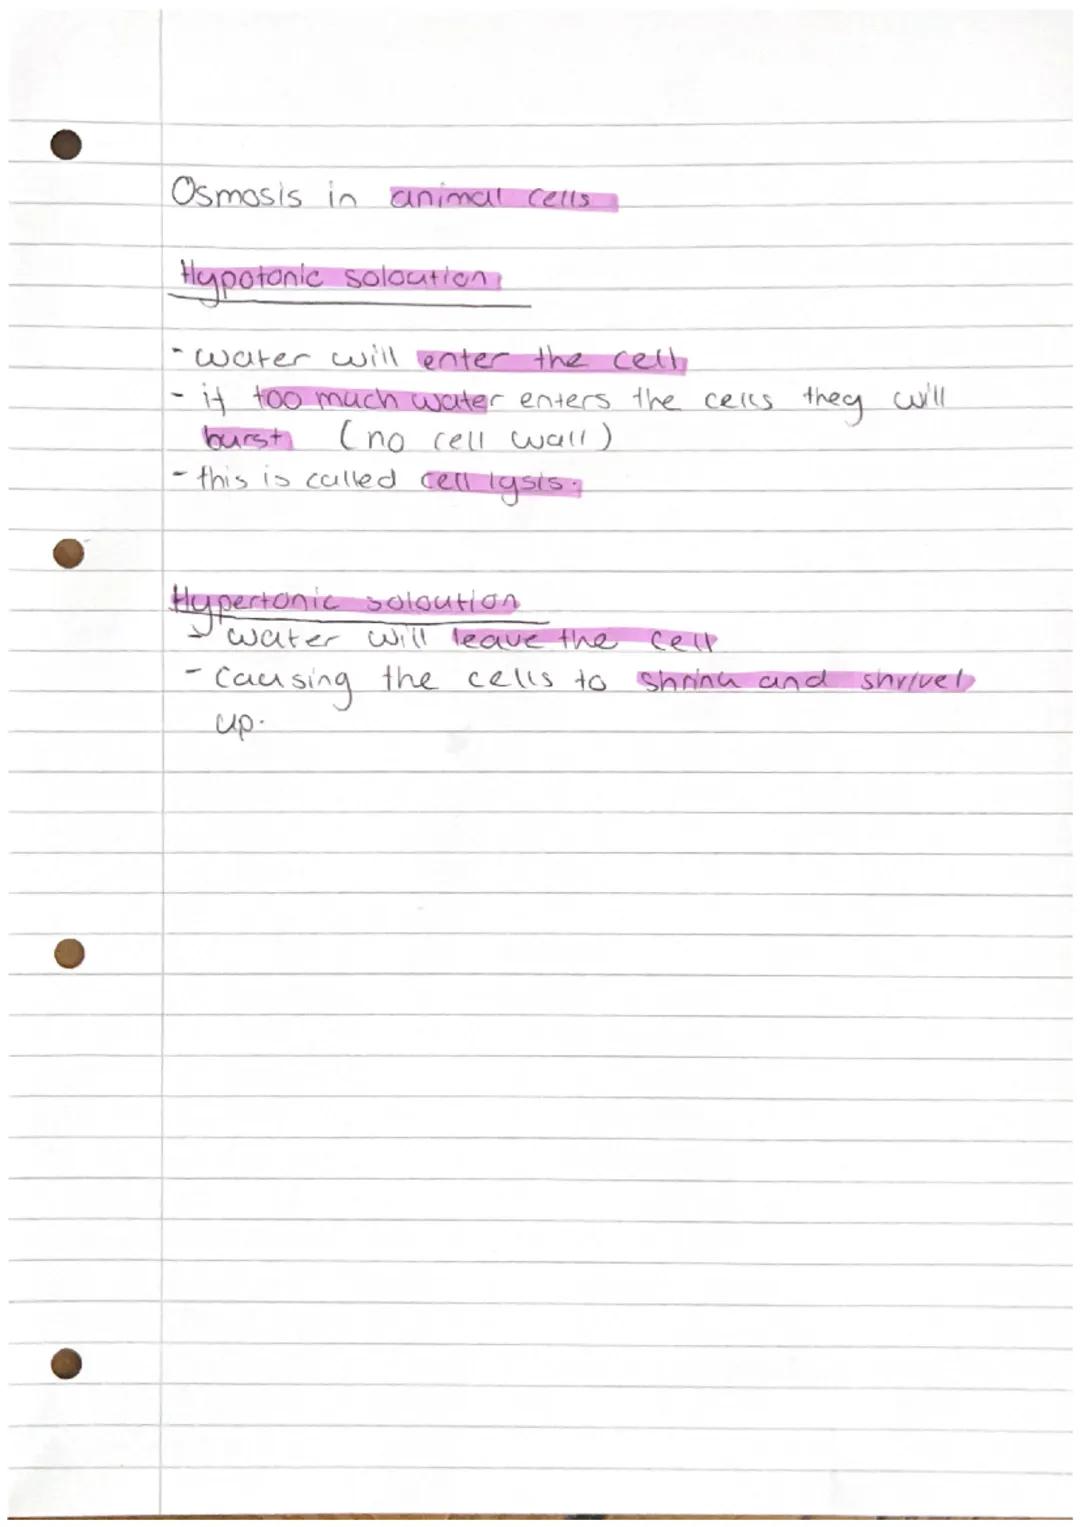 Osmosis in animal cells
Hypotonic soloution
- water will enter the cell
- if too much water enters the cells they will
burst (no cell wall)
- this is called cell lysis.
Hypertonic soloution
- water will leave the cell
- Causing the cells to shrink and shrivel
up.